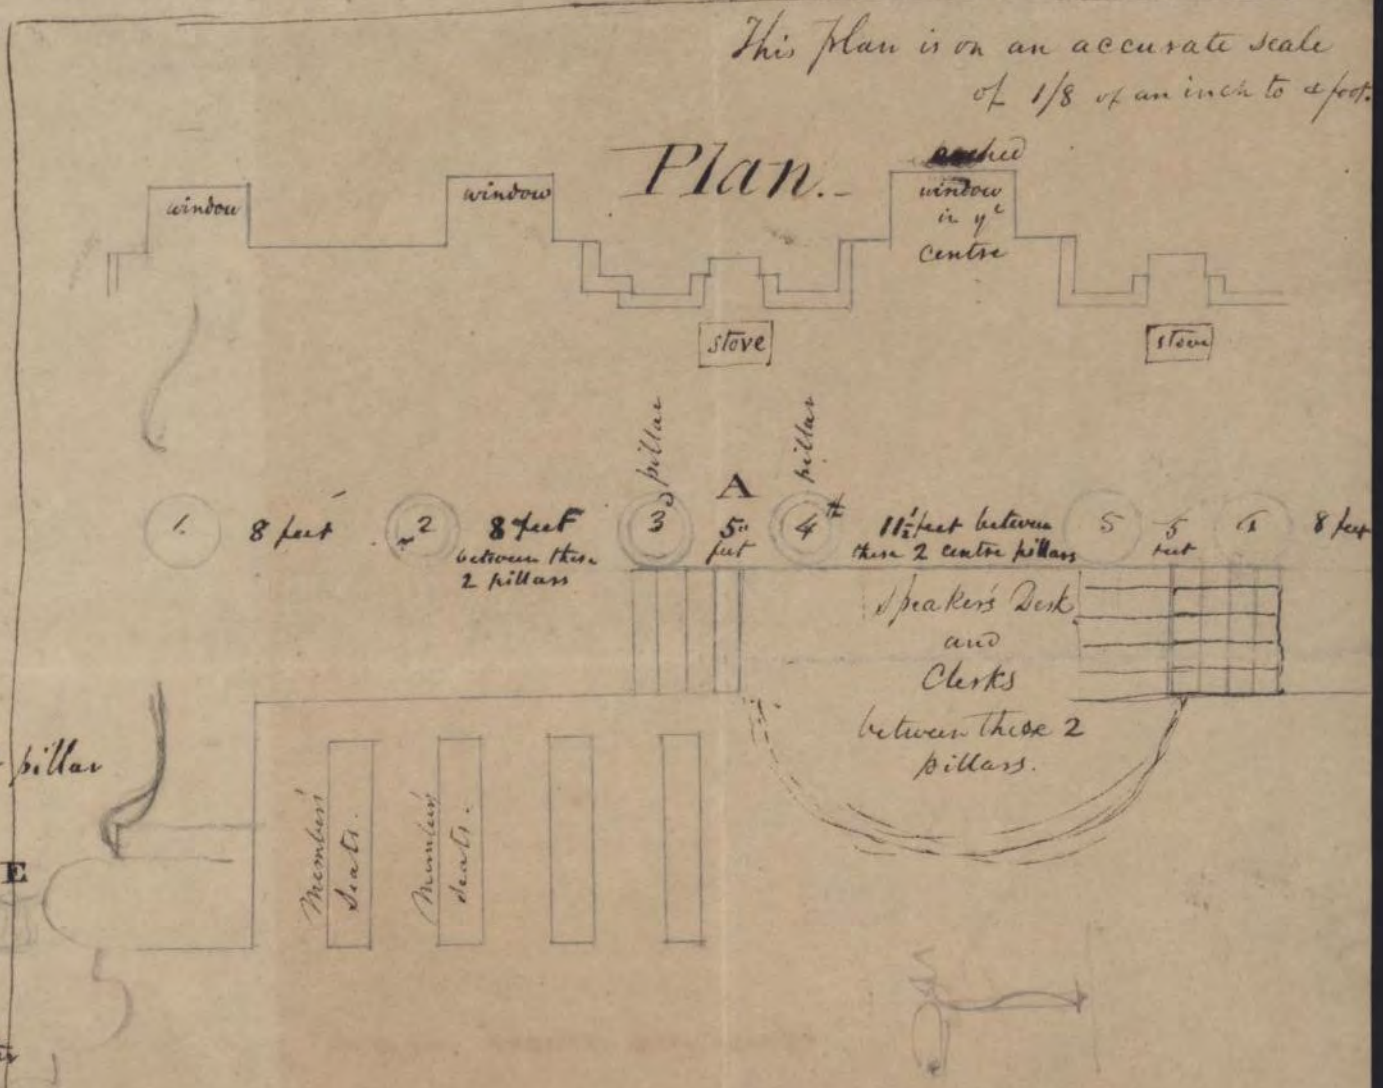 This plan is on an accurate scale
of 1/8 of an inch to a foot.
Plan.
arched
window
window
window
in yᵉ
centre
stove
stove
pillar
pillar
A
1.
8 feet
2
8 feet
between these
2 pillars
3
5"
feet
4th
11½ feet between
these 2 centre pillars
5
5
feet
8 feet
Speaker's Desk
and
Clerks
between these 2
pillars.
pillar
Members
Seats.
Members
Seats.
E